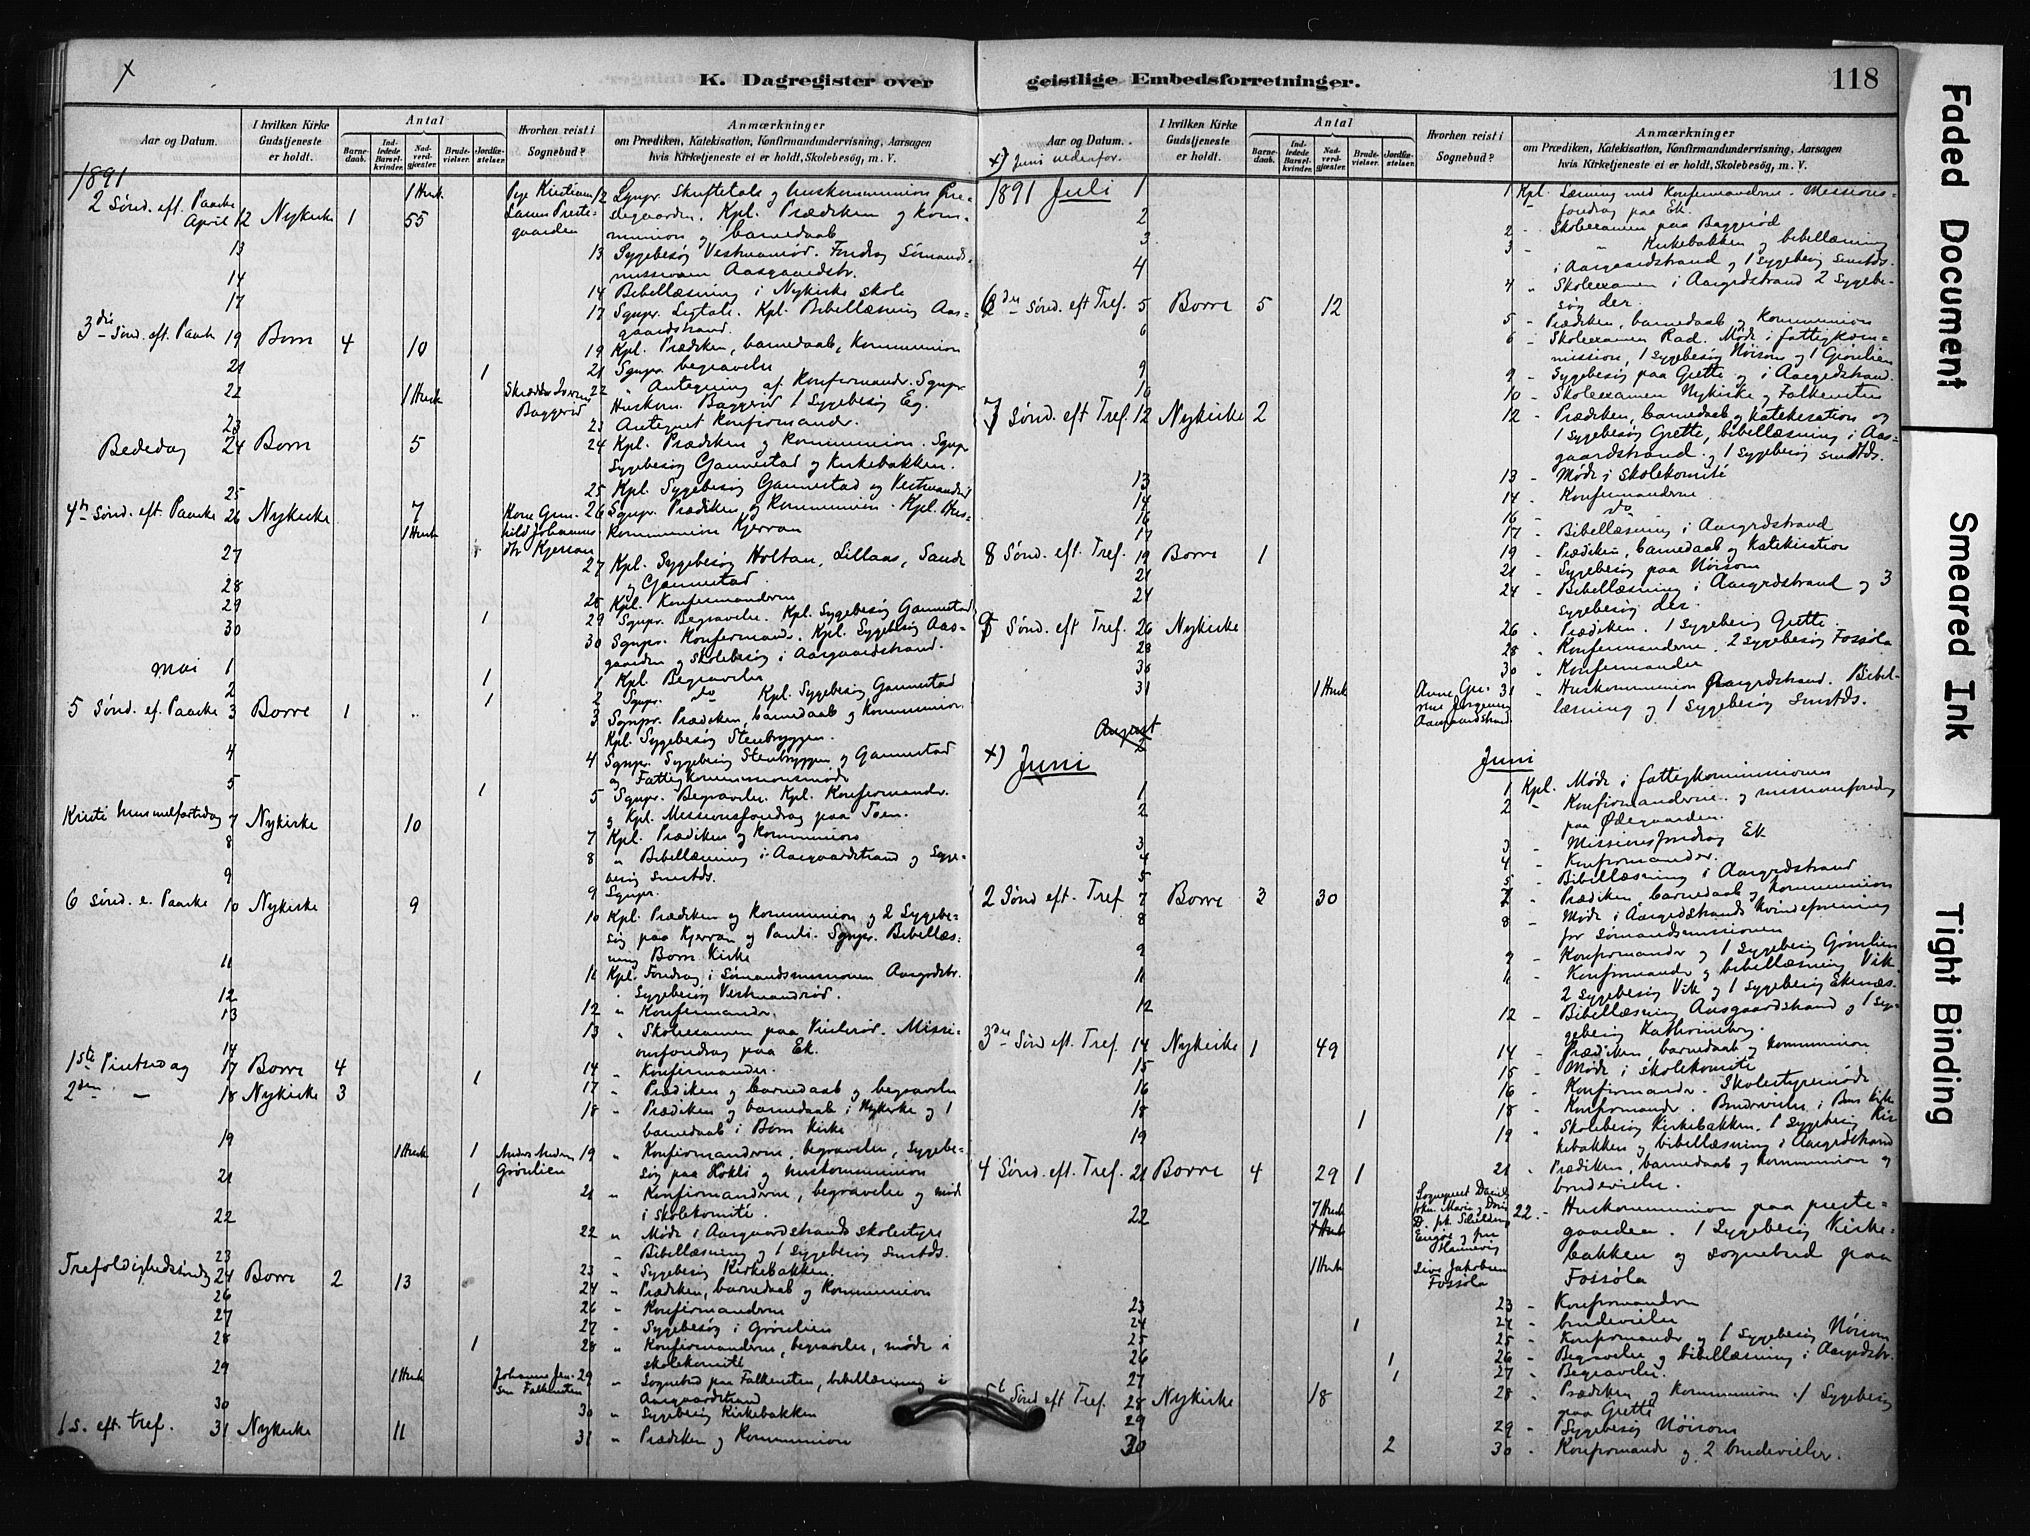 K. Dagregister over
Aar og Datum.
I hvilken Kirke
Gudstjeneste
er holdt.
Antal
Barne-
daab.
Ind-
ledede
Barsel-
kvinder.
Nad-
verd-
gjæster.
Brude-
vielser.
Jordfæ-
stelser.
Hvorhen reist i
Sognebud?
Anmærkninger
om Prædiken, Katekisation, Konfirmandundervisning, Aarsagen
hvis Kirketjeneste ei er holdt, Skolebesøg, m. V.
1891
2 Sønd. eft. Paaske
April 12 Nykirke 1 55
12 Sgnpr.
Kpl. Prædiken og kom-
munion og barnedaab
13 Sygebesøg
Aasgaardstr.
14 Bibellæsning i Nykirke skole
17 Sgnpr. Ligtale. Kpl. Bibellæsning Aas-
gaardstrand.
3die Sønd. eft. Paaske 19 Borre 4 10
19 Kpl. Prædiken, barnedaab, Kommunion
21 1 Sgnpr. begravelse
22 1 Husk
Baggerød
22 " Antegning af Konfirmander. Sgnpr
Huskom. Baggerød 1 Sygebesøg Eg.
23 Antegnet Konfirmander.
Bededag 24 Borre 5
24 Kpl. Prædiken og Kommunion. Sgnpr
Sygebesøg Gannestad og Kirkebakken.
25 Kpl. Sygebesøg Gannestad og
4de Sønd. eft. Paaske 26 Nykirke 7
1 Husk
26 Sgnpr. Prædiken og Kommunion. Kpl. Hus-
kommunion Kjerran
27 Kpl. Sygebesøg Holtan, Lillaas, Sande
og Gannestad.
28 Kpl. Konfirmanderne
29 1 Sgnpr. Begravelse. Kpl. Sygebesøg Gannestad
30 Sgnpr. Konfirmander. Kpl. Sygebesøg Aas-
gaarden og Skolebesøg i Aasgaardstrand.
Mai 1 1 Kpl. Begravelse
2 1 Sgnpr. do Kpl. Sygebesøg Gannestad
5 Sønd. ef. Paaske 3 Borre 1
3 Sgnpr. Prædiken, barnedaab og Kommunion.
Kpl. Sygebesøg Stenbryggen.
4 Sgnpr. Sygebesøg Stenbryggen og Gannestad
og Fattigkommissionsmøde
5 1 Sgnpr. Begravelse. Kpl. Konfirmander.
og Kpl. Missionsforedrag paa
Kristi himmelfartsdag 7 Nykirke 10
7 Kpl. Prædiken og Kommunion
8 " Bibellæsning i Aasgaardstrand og Syge-
besøg smstds.
9 Sgnpr.
6 Sønd. e. Paaske 10 Nykirke 9
10 Kpl. Prædiken og Kommunion og 2 Sygebe-
søg paa Kjerran og Pauli. Sgnpr. Bibellæs-
ning Borre Kirke
11 Kpl. Foredrag i Sømandsmissionen Aasgrdstr.
12 " Konfirmander.
13 " Skoleexamen paa Missi-
onsforedrag paa Ek.
14 " Konfirmander.
1ste Pintsedag 17 Borre 4 1
17 " Prædiken og barnedaab og begravelse
2den — 18 Nykirke 3
18 " Prædiken og barnedaab i Nykirke og 1
barnedaab i Borre Kirke
19 1 Husk 1
Grønlien
19 " Konfirmanderne, begravelse, Sygebe-
søg paa og huskommunion
21 1 " Konfirmanderne, begravelse og møde
i Skolekomité.
22 " Møde i Aasgaardstrands skolestyre
Bibellæsning og 1 Sygebesøg smstds.
23 " Sygebesøg Kirkebakken.
Trefoldighedssøndag 24 Borre 2 13
24 " Prædiken, barnedaab og Kommunion
26 " Konfirmanderne
27 " Sygebesøg i Grønlien
28 1 " Konfirmanderne, begravelse, møde i
skolekomité
29 1 Husk Johannes Jen-
sen Falkensten
29 " Sognebud paa Falkensten, bibellæsning i
Aasgaardstrand
30 " Sygebesøg Kirkebakken
1 s. eft. tref. 31 Nykirke 11
31 " Prædiken og Kommunion
geistlige Embedsforretninger.
118
Aar og Datum.
x) Juni nedenfor.
I hvilken Kirke
Gudstjeneste
er holdt.
Antal
Barne-
daab.
Ind-
ledede
Barsel-
kvinder.
Nad-
verd-
gjæster.
Brude-
vielser.
Jordfæ-
stelser.
Hvorhen reist i
Sognebud?
Anmærkninger
om Prædiken, Katekisation, Konfirmandundervisning, Aarsagen
hvis Kirketjeneste ei er holdt, Skolebesøg, m. V.
1891 Juli 1
1 Kpl. Læsning med Konfirmanderne. Missions-
foredrag paa Ek.
2 - Skoleexamen paa Baggerød
3 - " Kirkebakken og bibellæsning
i Aasgaardstrand og 1 Sygebesøg smstds.
4 - Skoleexamen i Aasgrdstrand 2 Sygebe-
søg der.
6te Sønd. eft Tref. 5 Borre 5 12
5 - Prædiken, barnedaab og Kommunion
6 - Skoleexamen Rad. Møde i fattigkom-
mission, 1 Sygebesøg Nøisom og 1 Grønlien
9 - Sygebesøg paa Grette og i Aasgrdstrand.
10 - Skoleexamen Nykirke og Falkensten
7 Sønd. eft Tref. 12 Nykirke 2
12 - Prædiken, barnedaab og Katekisation og
1 Sygebesøg Grette, bibellæsning i Aas-
gaardstrand og 1 Sygebesøg smstds.
13 - Møde i Skolekomité
14 - Konfirmanderne
16 - do
17 - Bibellæsning i Aasgrdstrand
8 Sønd. eft Tref. 19 Borre 1
19 - Prædiken, barnedaab og Katekisation
21 - Sygebesøg paa Nøisom
24 - Bibellæsning i Aasgrdstrand og 3
Sygebesøg der.
9 Sønd. eft Tref. 26 Nykirke
26 - Prædiken. 1 Sygebesøg Grette
28 - Konfirmanderne. 2 Sygebesøg Fossøla
30 - Konfirmander
31 1 Husk
Aasgaardstrand.
31 - Huskommunion Aasgrdstrand. Bibel-
læsning og 1 Sygebesøg smstds.
August
2
x) Juni
Juni
1 Kpl. Møde i fattigkommissionen
2 - Konfirmanderne og missionsforedrag
paa Ødegaarden.
3 - Missionsforedrag Ek
4 - Konfirmander.
5 - Bibellæsning i Aasgrdstrand
2 Sønd eft. Tref 7 Borre 3 30
7 - Prædiken, barnedaab og Kommunion
8 - Møde i Aasgrdstrands Kvindeforening
for Sømandsmissionen
9 - Konfirmander og 1 Sygebesøg Grønlien
11 - Konfirmander og bibellæsning Vik
2 Sygebesøg Vik og 1 Sygebesøg Ekenæs.
12 - Bibellæsning Aasgaardstrand og 1 Sy-
gebesøg
3die Sønd eft. Tref. 14 Nykirke 1 49
14 - Prædiken, barnedaab og Kommunion
15 - Møde i skolekomité
16 - Konfirmander. Skolestyremøde
18 1 - Konfirmander. Brudevielse i Borre Kirke
19 " Skolebesøg Kirkebakken. 1 Sygebesøg Kir-
kebakken og bibellæsning i Aasgrdstrand
4 Sønd. eft. Tref. 21 Borre 4 29 1
21 - Prædiken, barnedaab og Kommunion og
brudevielse.
22 7 Husk
22 - Huskommunion paa preste-
gaarden. 1 Sygebesøg Kirke-
bakken og sognebud paa
Fossøla
1 Husk
Fossøla
23 - Konfirmanderne
24 1 - brudevielse
25 - Konfirmander og 1 Sygebesøg Nøisom
26 1 - Begravelse og bibellæsning i Aasgrdstr.
27 1 - Begravelse.
5te Sønd eft Tref. 28 Nykirke 18
28 - Prædiken og Kommunion. 1 Sygebesøg
paa Grette
29 - Sygebesøg Nøisom
30 2
30 - Konfirmander og 2 brudevielser.
Faded Document
Smeared Ink
Tight Binding